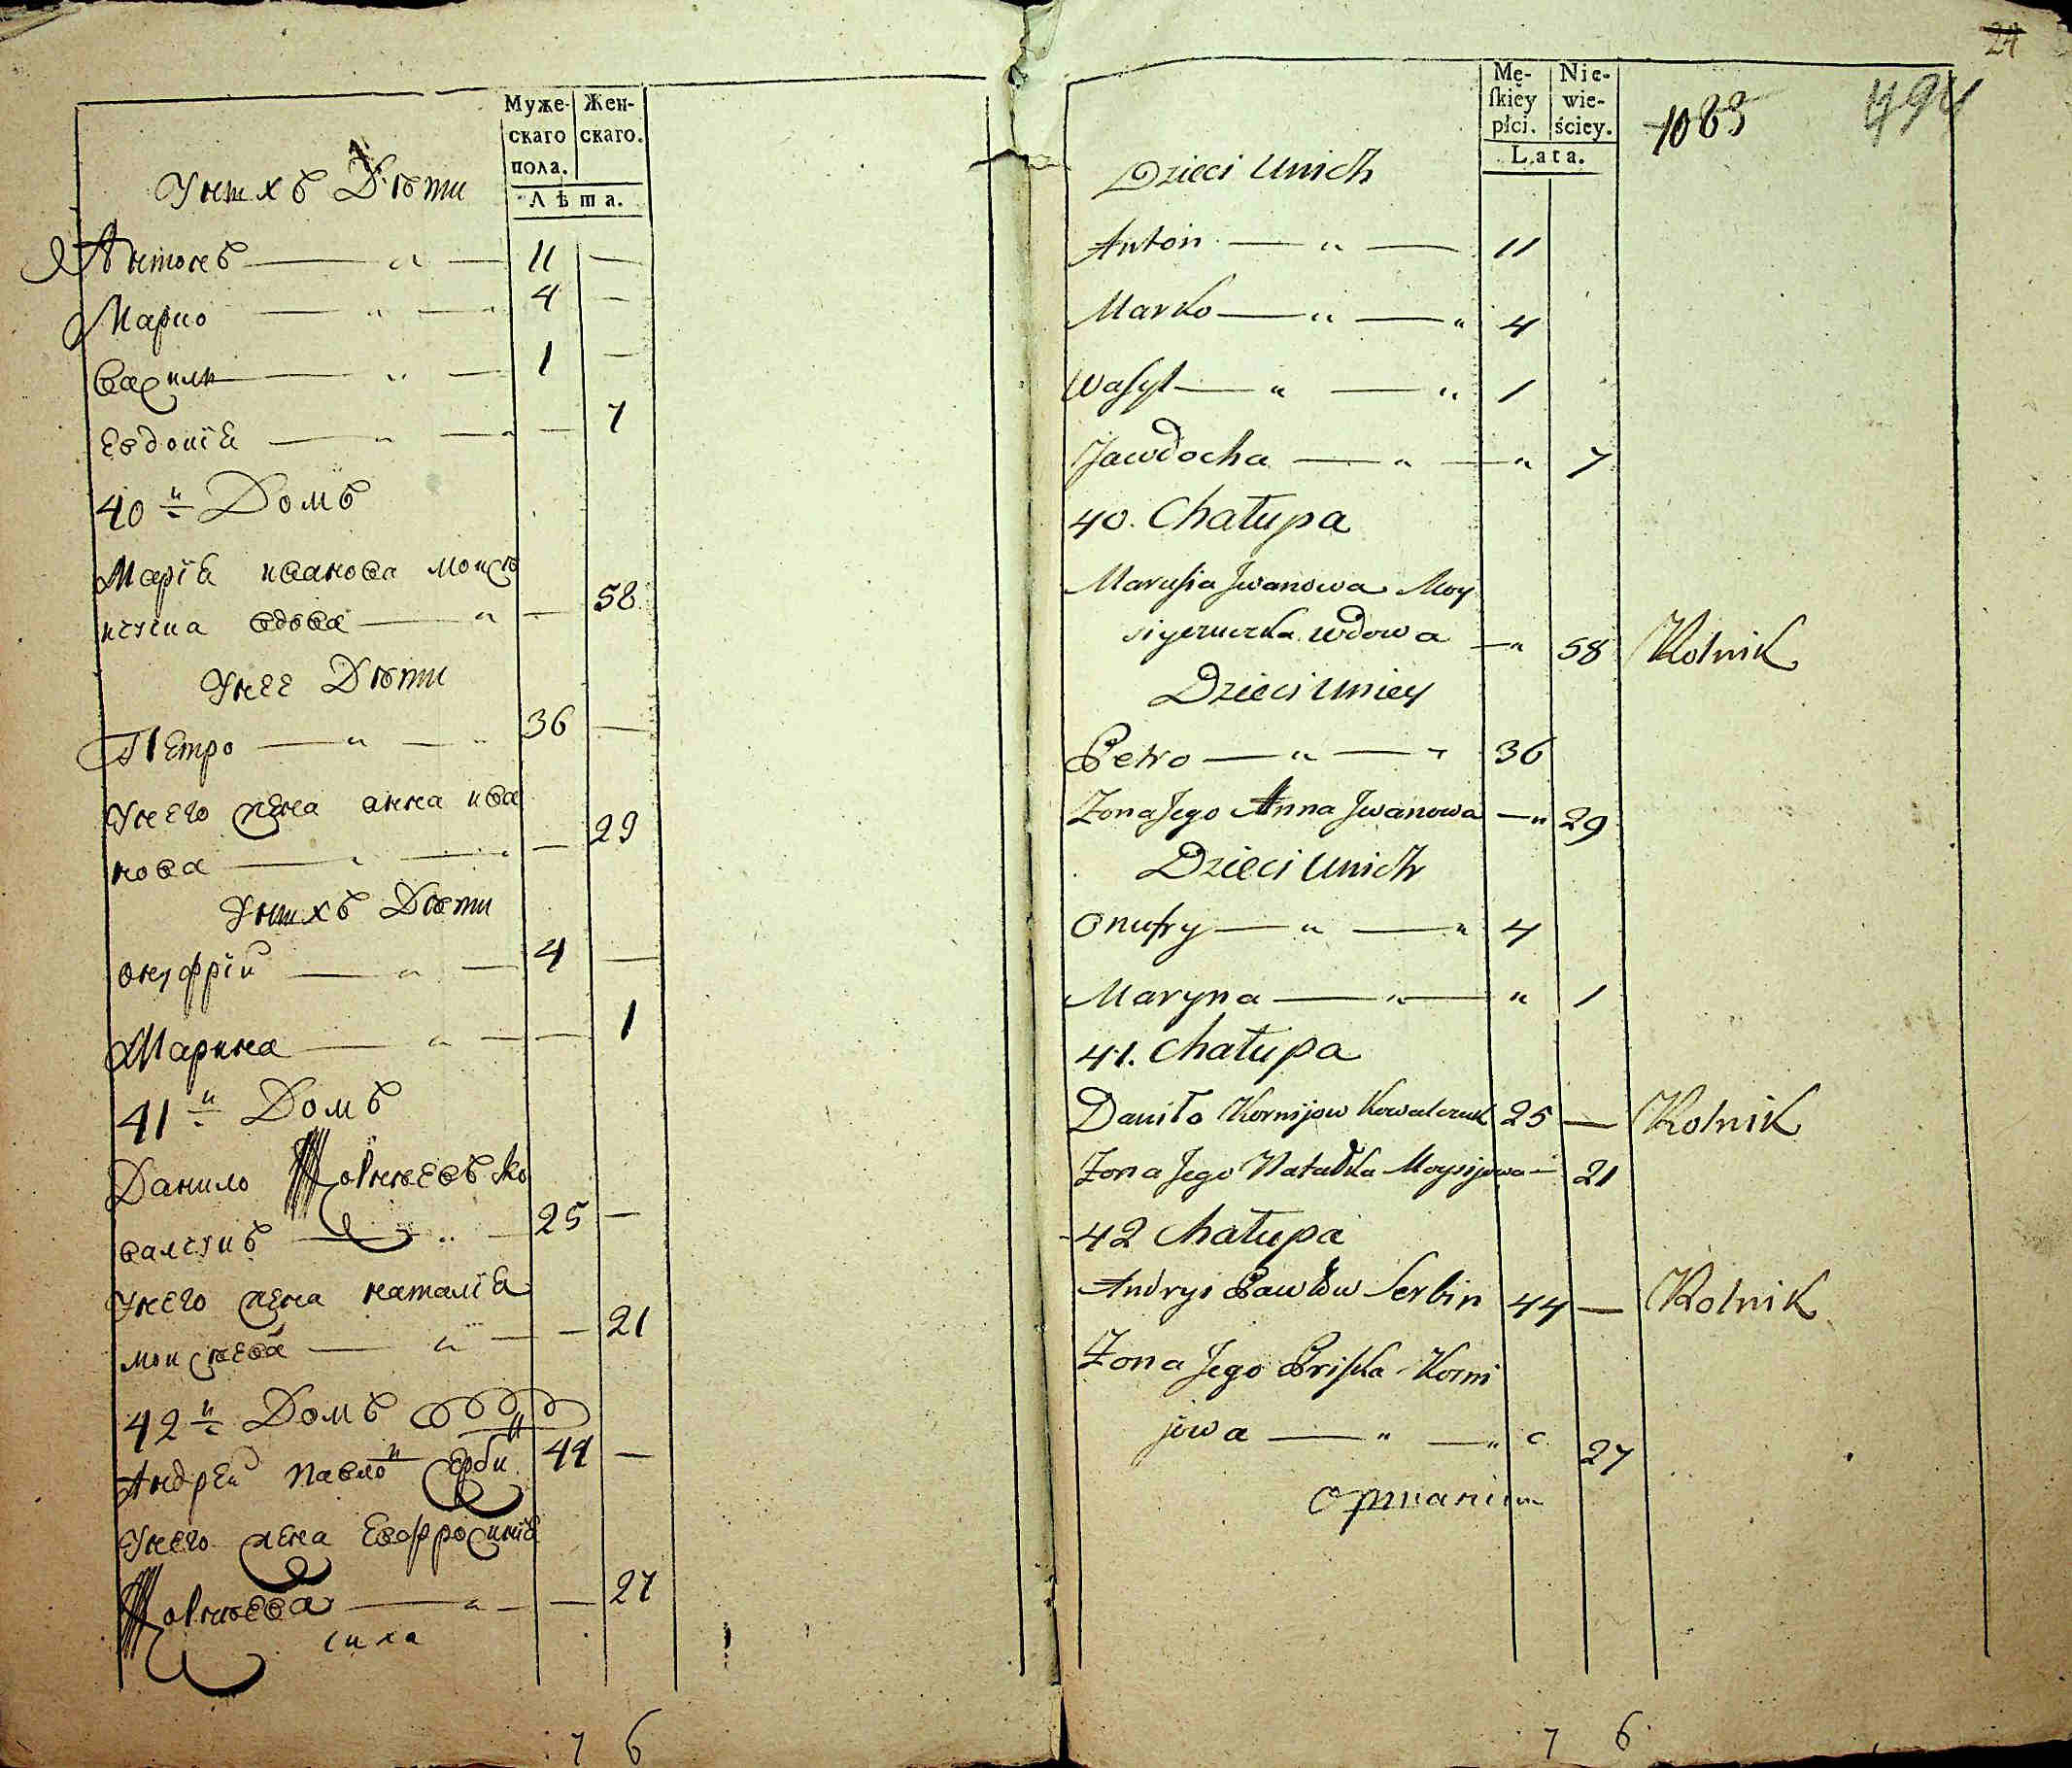 Муже-
скаго
пола.
Жен-
скаго.
Лѣта.
Унихъ Дѣти
Антонъ — " — 11 —
Марко — " — 4 —
Василь — " — 1 —
Евдокїа — " — — 7
40й Домъ
Марїа иванова моисѣ
ичича вдова — " — 58
Унее Дѣти
Петро — " — " 36 —
Унего жена анна ива
нова — " — " — 29
Унихъ Дѣти
Онуфрїй — " — 4 —
Марина — " — — 1
41й Домъ
Данило Корнѣевъ ко
валчукъ — " — 25 —
Унего жена наталїа
моисѣева — " — — 21
42й Домъ
Андрей Павлов Серби 44 —
Унего жена Евфросинїа
Корнѣева — " — — 27
7 6
24
Mę-
ſkiéy
płci.
Nie-
wie-
ściey.
Lata.
1083
494
Dzieci Unich
Anton — " — 11
Marko — " — " 4
Waſyl — " — " 1
Jawdocha — " — " 7
40. Chałupa
Maruſia Jwanowa Moy
wdowa — " 58 Rolnik
Dzieci Uniey
Petro — " — " 36
Żona Jego Anna Jwanowa — " 29
Dzieci Unich
Onufry — " — " 4
Maryna — " — " 1
41. Chałupa
Daniło Kornijow Kowalczuk 25 — Rolnik
Żona Jego Natałka Moysijowa — 21
42 Chałupa
Andryi Pawłow Serbin 44 — Rolnik
Żona Jego Priſka Korni
jowa — " — " 27
7 6